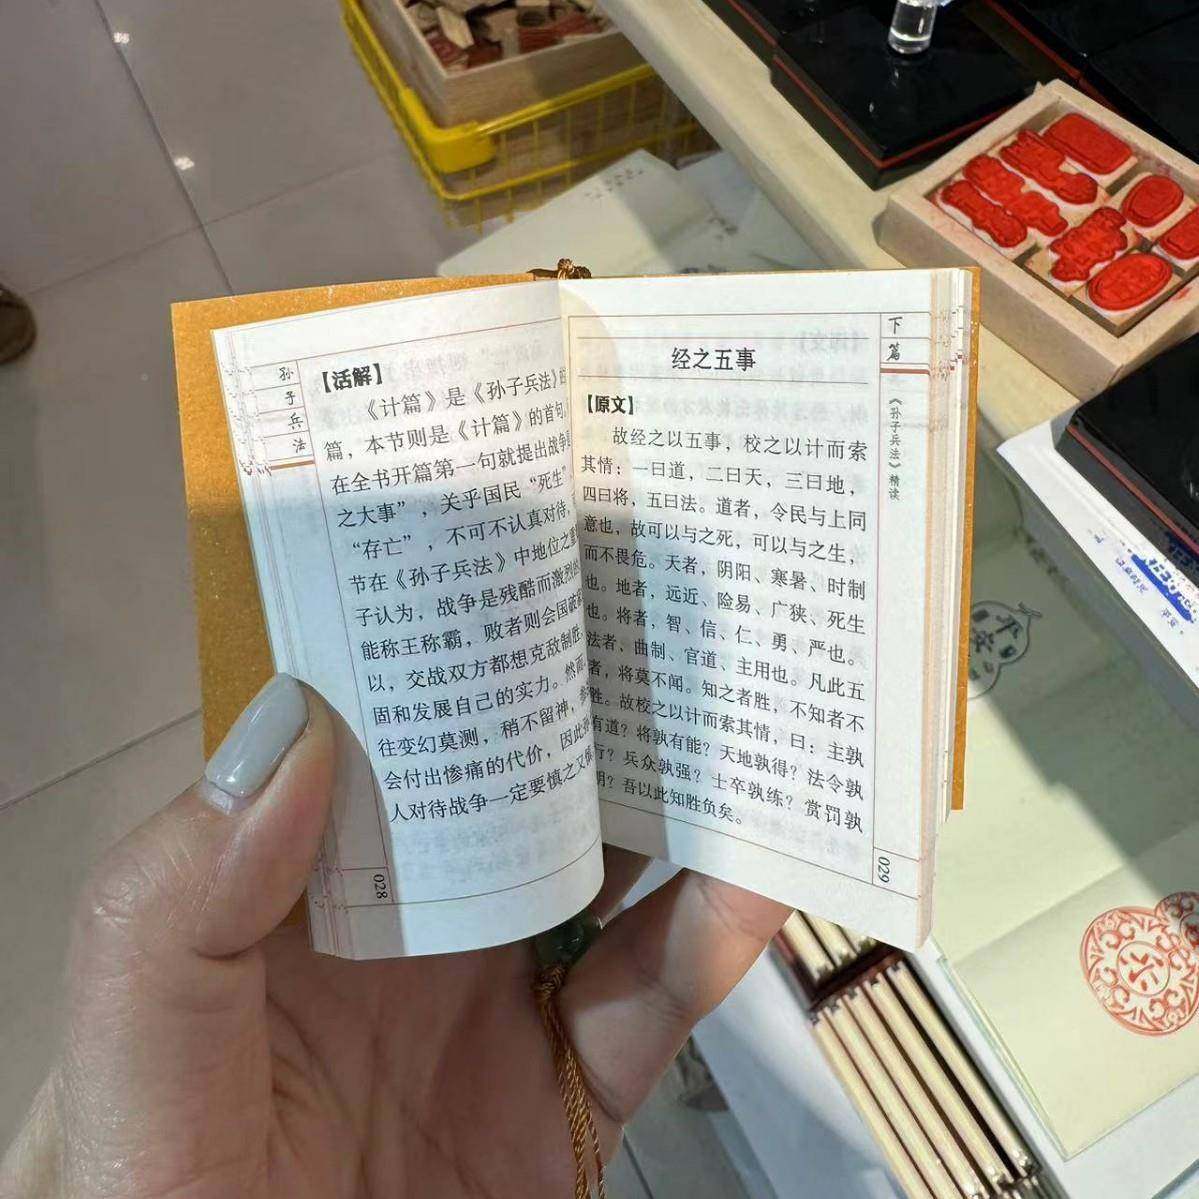 孙子兵法
【活解】
《计篇》是《孙子兵法》的
篇，本节则是《计篇》的首句，
在全书开篇第一句就提出战争
之大事”，关乎国民“死生”
“存亡”，不可不认真对待，
节在《孙子兵法》中地位之重
子认为，战争是残酷而激烈的
能称王称霸，败者则会国破家
以，交战双方都想克敌制胜，
固和发展自己的实力。然而，
往变幻莫测，稍不留神，
会付出惨痛的代价，因此
人对待战争一定要慎之又慎
028
下篇
《孙子兵法》精读
经之五事
【原文】
故经之以五事，校之以计而索
其情：一曰道，二曰天，三曰地，
四曰将，五曰法。道者，令民与上同
意也，故可以与之死，可以与之生，
而不畏危。天者，阴阳、寒暑、时制
也。地者，远近、险易、广狭、死生
也。将者，智、信、仁、勇、严也。
法者，曲制、官道、主用也。凡此五
者，将莫不闻。知之者胜，不知者不
胜。故校之以计而索其情，曰：主孰
有道？将孰有能？天地孰得？法令孰
行？兵众孰强？士卒孰练？赏罚孰
明？吾以此知胜负矣。
029
平安
六